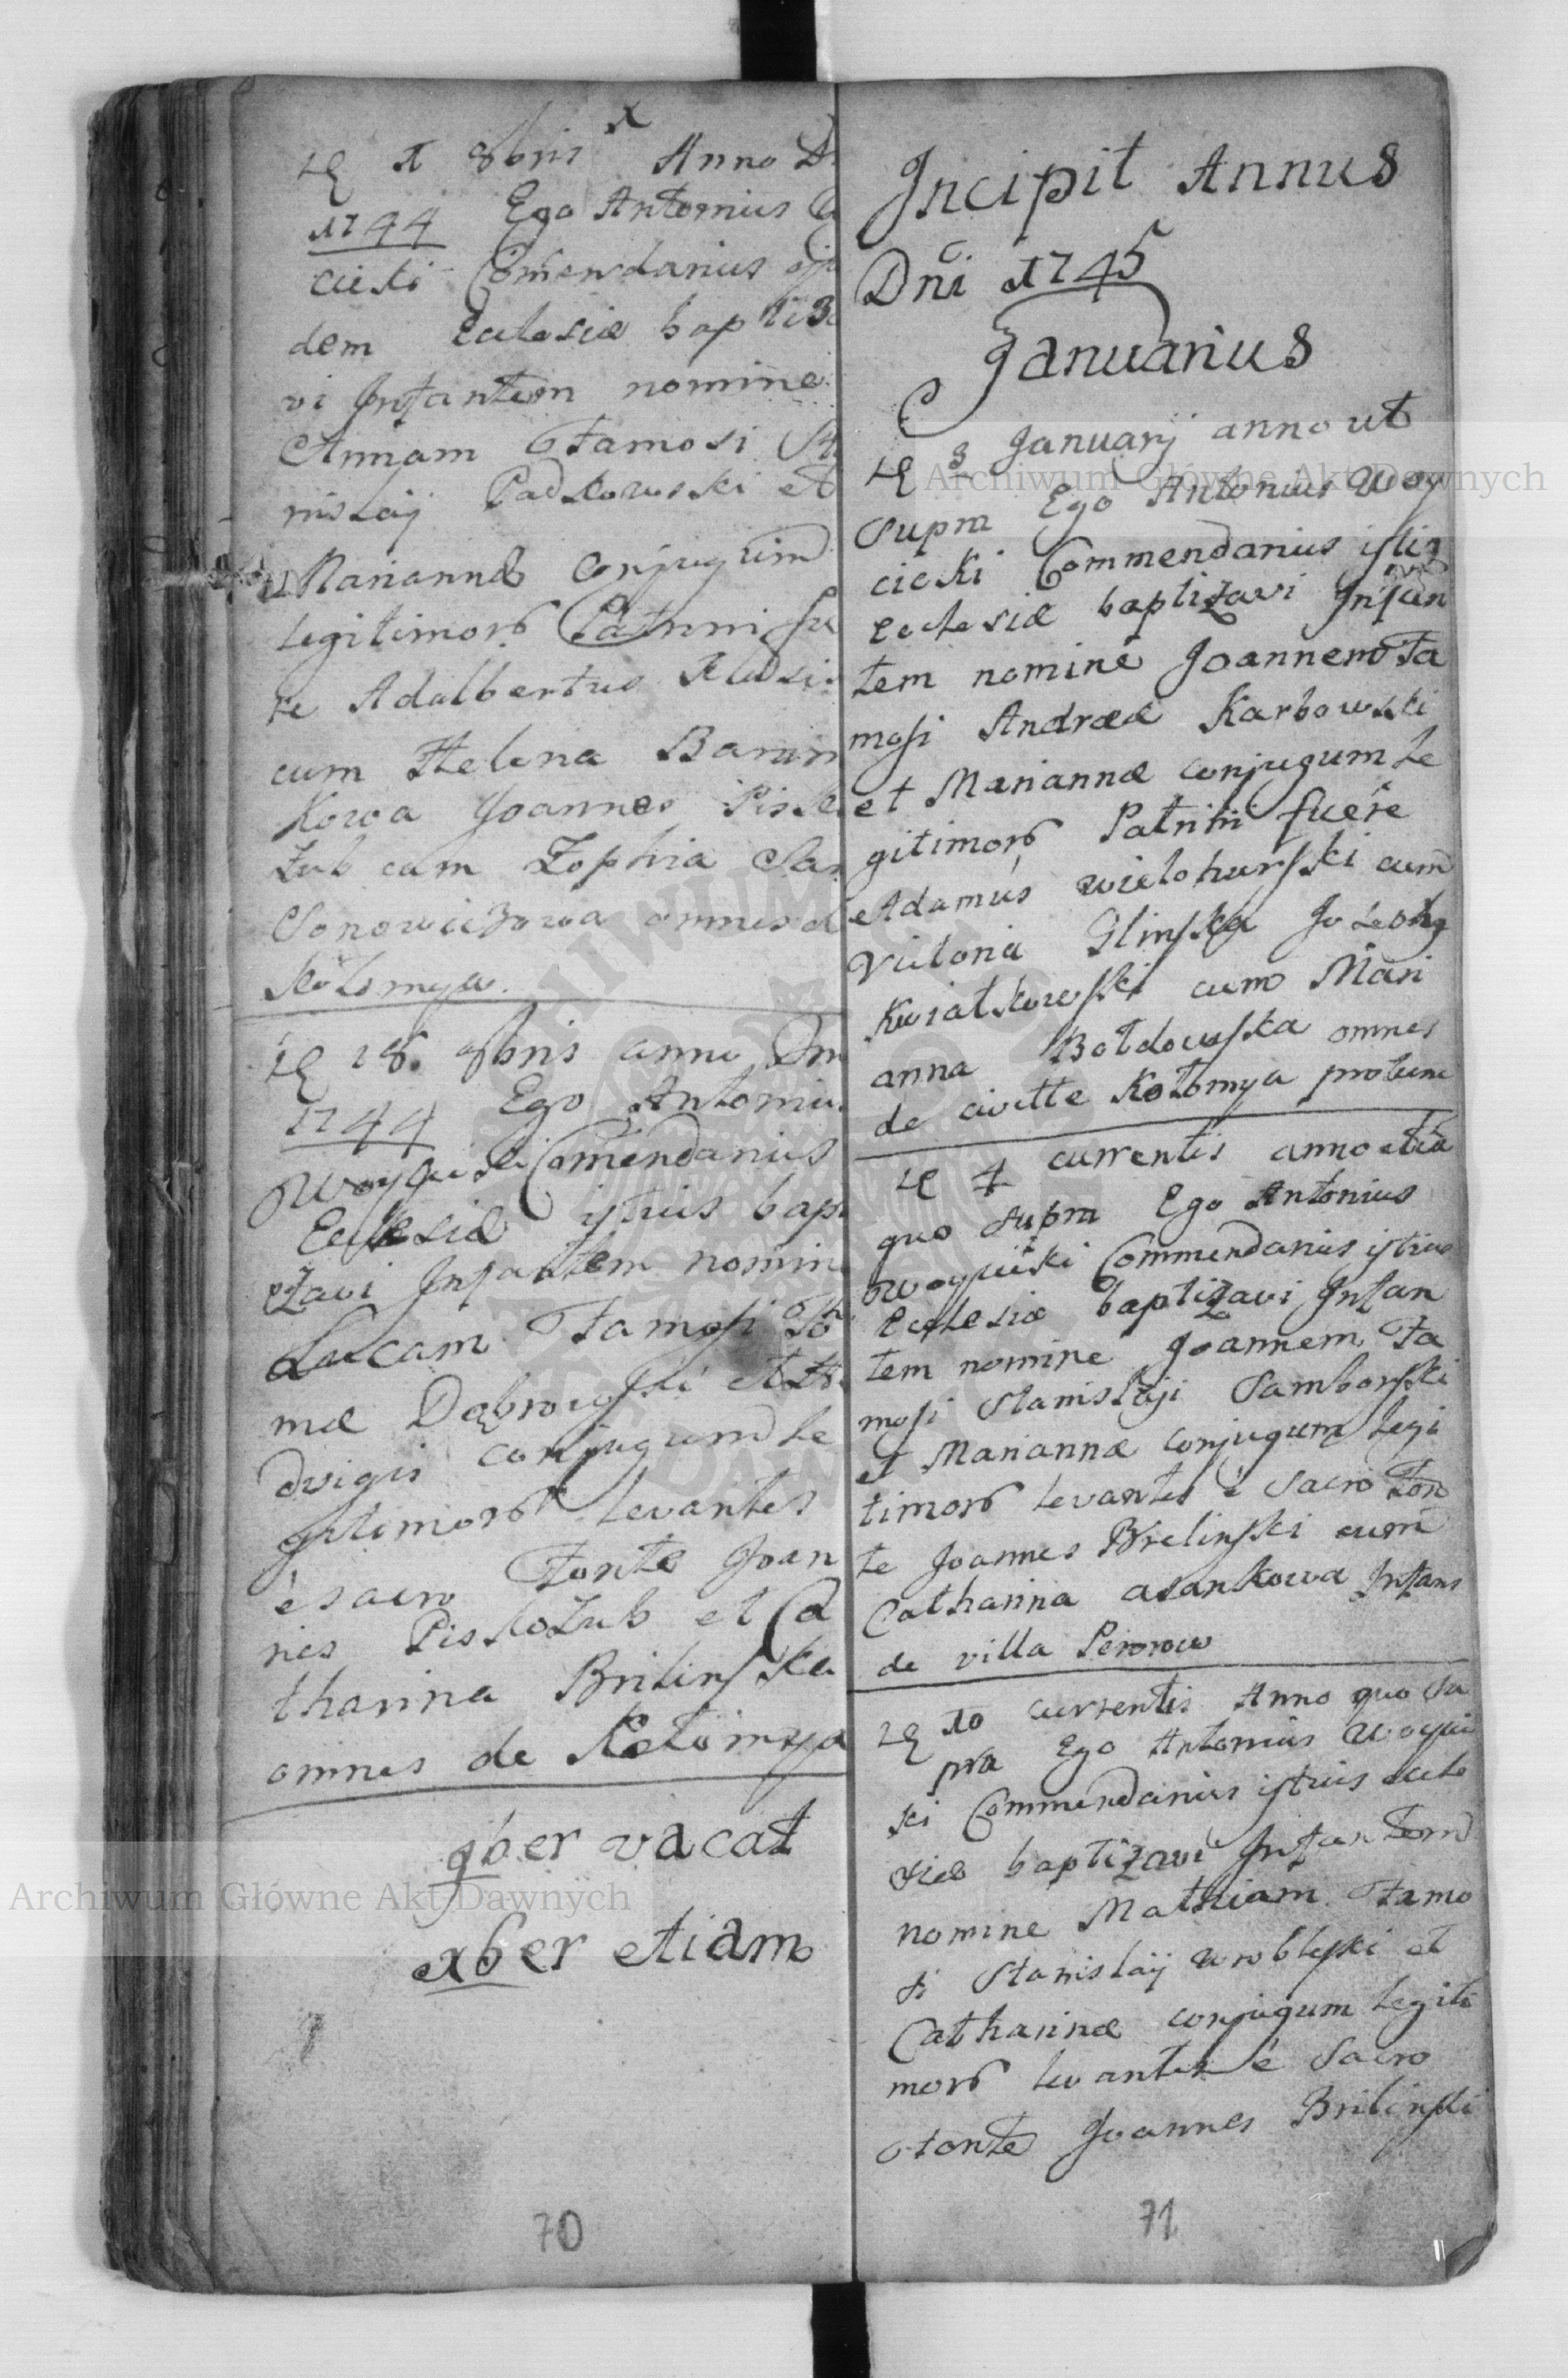 1 8bris Anno D
1744 Ego Antonius
cicki Comendarius
dem Ecclesiæ bapti3
vi Infantem nomine
Annam Famosi
nislaij Padkowski et
Mariannæ Conjugum
legitimor Patrini fu
re Adalbertus
cum Helena
kowa Joannes Pisk
zub cum Zophia Sa
omnes d
Kołomya.
18. 8bris anno Dn
1744 Ego Antoniu
Woycicki Comendarius
Ecclesiæ istius bapt
zavi Infantem nomin
Lucam Famosi Tho
mæ Dąbrowski et
dvigis conjugum le
gitimor levantes
è sacro Fonte Joan
nes Piskozub et Ca
tharina Brilinska
omnes de Kołomya
9ber vacat
xber etiam
70
Incipit Annus
Dni 1745
Januarius
3 Januarij anno ut
supra Ego Antonius Woy
cicki Commendarius istius
Ecclesiæ baptizavi Infan
tem nomine Joannem Fa
mosi Andreæ Karbowski
et Mariannæ conjugum le
gitimor Patrini fuere
Adamus wielohurski cum
Victoria Glinska
Kwiatkowski cum Mari
anna Bołdowska omnes
de civitte Kołomya protunc
4 currentis anno
quo supra Ego Antonius
Woycicki Commendarius istius
Ecclesiæ baptizavi Infan
tem nomine Joannem Fa
mosi Stanislaji Samborski
et Mariannæ conjugum legi
timor levantes è Sacro Fon
te Joannes Brelinski cum
Catharina asankowa Infans
de villa
10 currentis Anno quo Su
pra Ego Antonius Woycic
ki Commendarius istius Eccle
siæ baptizavi Infantem
nomine Mathiam Famo
si Stanislaij wroblewski et
Catharinæ conjugum legiti
mor levantes è Sacro
Fonte Joannes Brilinski
71
Archiwum Główne Akt Dawnych
Archiwum Główne Akt Dawnych